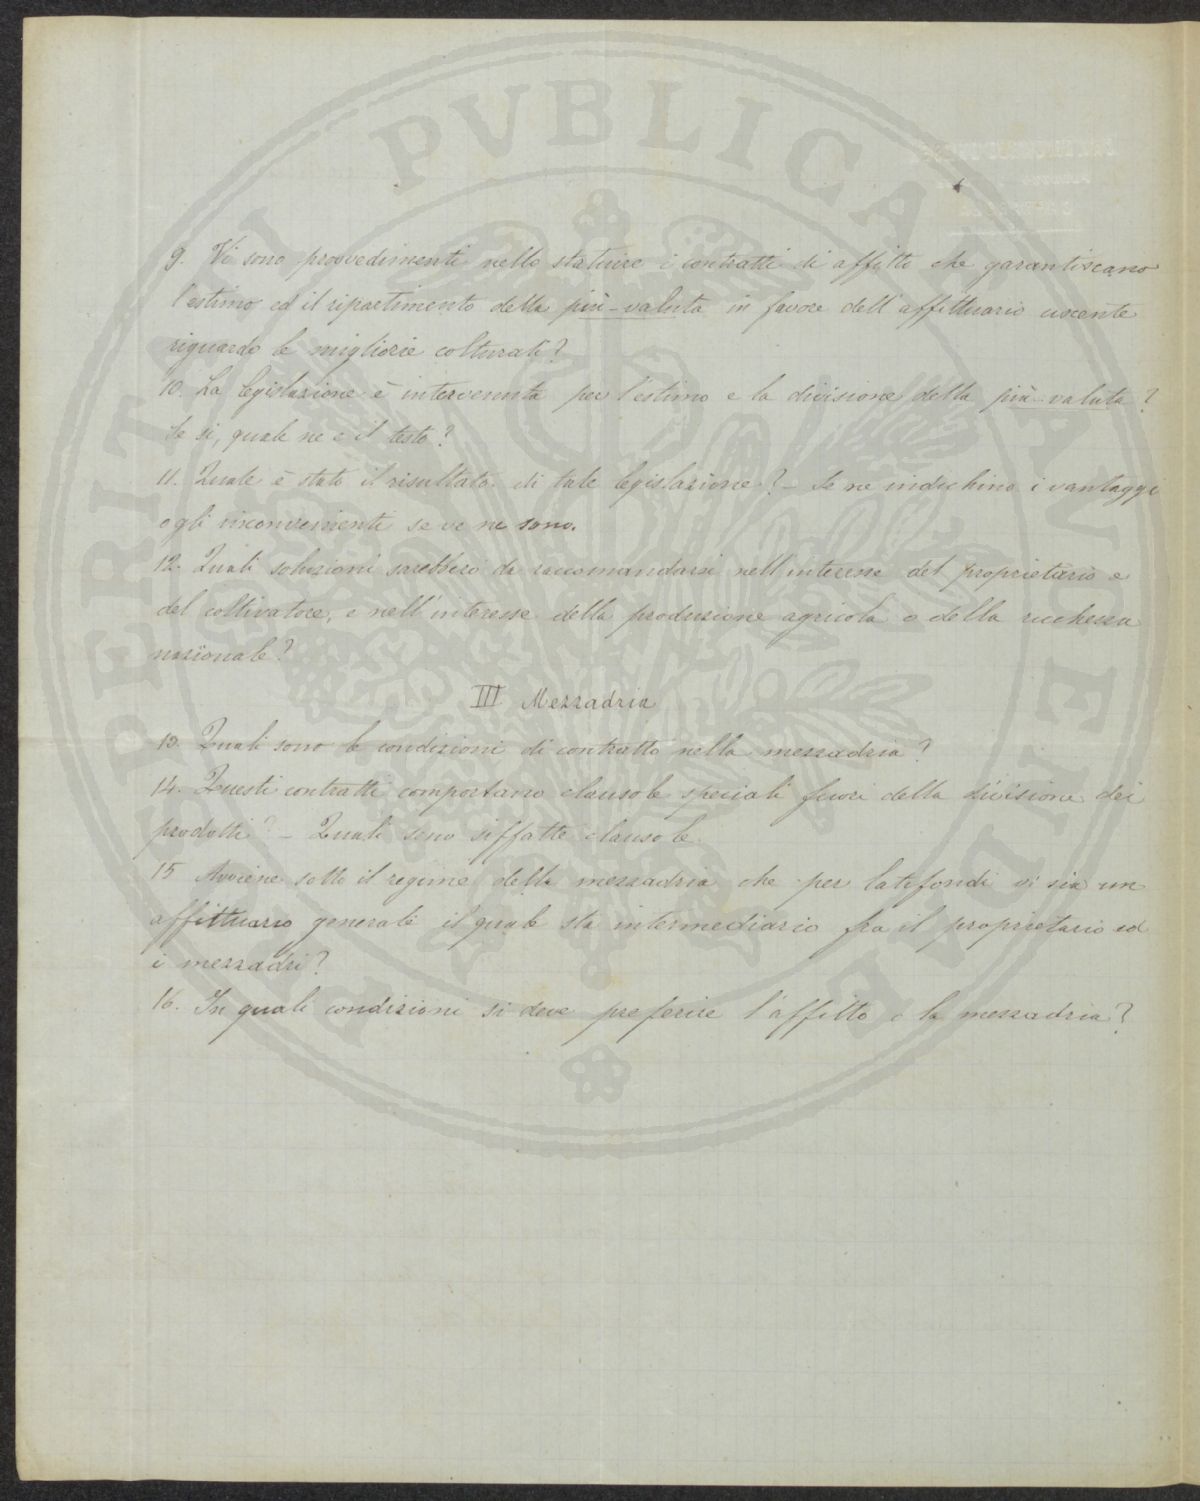 9. Vi sono provvedimenti nello statuire i contratti di affitto che garantiscano
l'estimo ed il ripartimento della più-valuta in favore dell'affittuario uscente
riguardo le migliorie colturali?
10. La legislazione è intervenuta per l'estimo e la divisione della più-valuta?
Se si, quale ne è il testo?
11. Quale è stato il risultato di tale legislazione? – Se ne indichino i vantaggi
o gli inconvenienti se ve ne sono.
12. Quali soluzioni sarebbero da raccomandarsi nell'interesse del proprietario e
del coltivatore, e nell'interesse della produzione agricola o della ricchezza
nazionale?
III Mezzadria
13. Quali sono le condizioni di contratto nella mezzadria?
14. Questi contratti comportano clausole speciali fuori della divisione dei
prodotti? – Quali sono siffatte clausole.
15 Avviene sotto il regime della mezzadria che per latifondi vi sia un
affittuario generale il quale sta intermediario fra il proprietario ed
i mezzadri?
16. In quali condizioni si deve preferire l'affitto o la mezzadria?